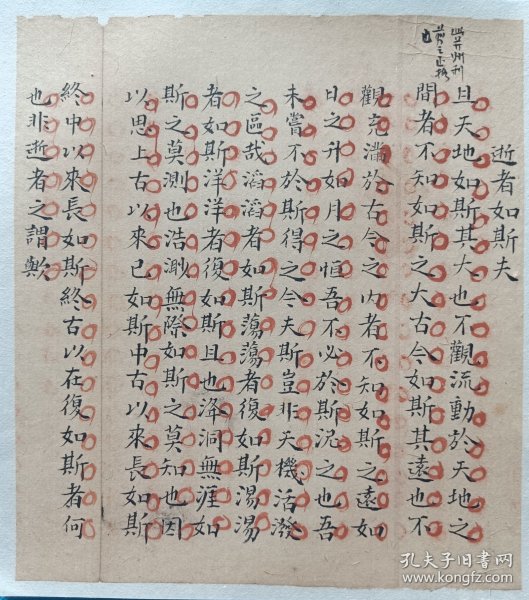 逝者如斯夫
且天地如斯其大也不觀流動於天地之
間者不知如斯之大古今如斯其遠也不
觀充滿於古今之內者不知如斯之遠如
日之升如月之恒吾不必於斯泥之也吾
未嘗不於斯得之今夫斯豈非天機活潑
之區哉滔滔者如斯蕩蕩者復如斯湯湯
者如斯洋洋者復如斯且也洚洞無涯如
斯之莫測也浩渺無際如斯之莫知也因
以思上古以來已如斯中古以來長如斯
終中以來長如斯終古以在復如斯者何
也非逝者之謂歟
孔夫子旧书网
www.kongfz.com